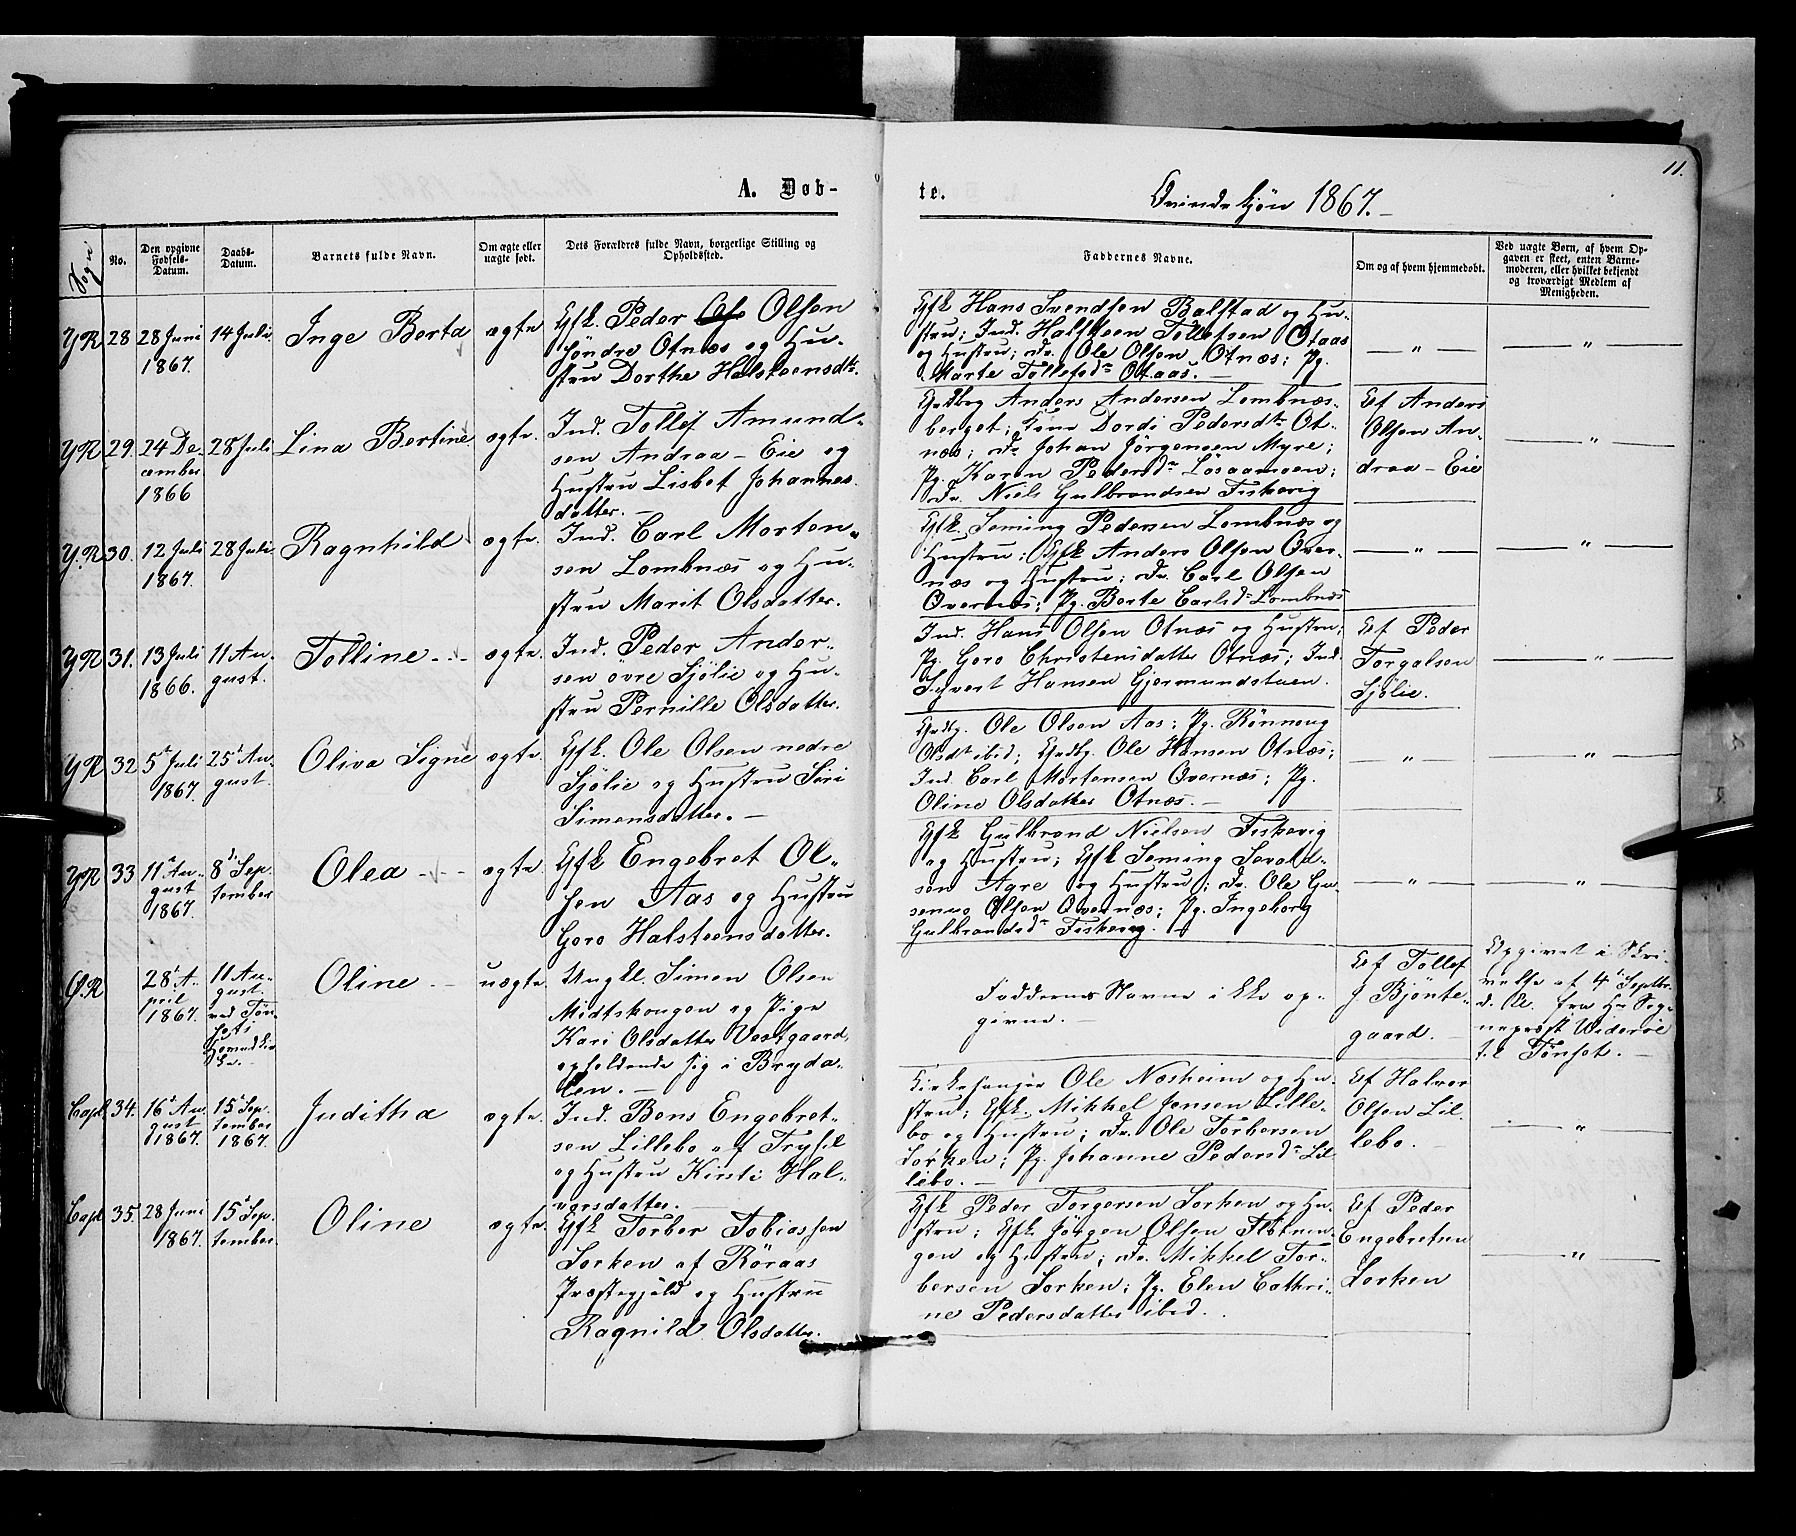 11.
A. Døb-
te.
Qvindekjøn 1867.-
Sogn
No.
Den opgivne Fødsels-Datum.
Daabs-Datum.
Barnets fulde Navn.
Om ægte eller uægte født.
Dets Forældres fulde Navn, borgerlige Stilling og Opholdssted.
Faddernes Navne.
Om og af hvem hjemmedøbt.
Ved uægte Børn, af hvem Op-
gaven er skeet, enten Barne-
moderen, eller hvilket bekjendt
og troværdigt Medlem af
Menigheden.
Y.R 28 28 Juni 14 Juli Inge Berta ægte Gfk. Peder Olsen
1867. søndre Otnæs og Hu-
stru Dorthe Halsteensdtr.
Gfk Hans Svendsen Balstad og Hu-
stru; Ind. Halsteen Tollefsen Otaas
og Hustru; Dr. Ole Olsen Otnæs; Pg.
Marte Tollefsdr Otaas.
— " —
— " —
Y.R 29. 24 De- 28 Juli Lina Bertine ægte. Ind. Tollef Amund-
cember sen Andraa-Eie og
1866 Hustru Lisbet Johannes-
datter.-
Anders Andersen Lombnæs-
berget; Dordi Pedersdtr Ot-
næs; Dr. Johan Jörgensen Myre;
Pg. Karen Pedersdr Lösaamoen;
Dr. Niels Gulbrandsen Fiskevig
Ef Anders
Olsen An-
draa-Eie
— " —
Y.R 30. 12 Juli 28 Juli Ragnhild ægte. Ind. Carl Morten-
1867. sen Lombnæs og Hu-
stru Marit Olsdatter.
Gfk. Seming Pedersen Lombnæs og
Hustru; Gfk Anders Olsen Over-
næs og Hustru; Dr. Carl Olsen
Overnæs; Pg. Berte Carlsdr Lombnæs
— " —
— " —
Y.R 31. 13 Juli 11 Au- Tolline - - ægte. Ind. Peder Ander-
1866. gust. sen övre Sjölie og Hu-
stru Pernille Olsdatter.
Ind. Hans Olsen Otnæs og Hustru;
Pg. Goro Christensdatter Otnæs; Ind.
Syvert Hansen Gjermundstuen.
Ef Peder
Torgalsen
Sjölie.
— " —
Y.R 32 5t Juli 25t Au- Oliva Signe ægte. Gfk. Ole Olsen nedre
1867. gust. Sjölie og Hustru Siri
Simensdatter.-
Ole Olsen Aas; Pg. Rönnoug
Olsdtr ibid; Ole Hansen Otnæs;
Ind. Carl Mortensen Overnæs; Pg.
Oline Olsdatter Otnæs.-
— " —
— " —
Y.R 33 11t Au- 8d Sep- Olea - - - ægte. Gfk Engebret Ol-
gust tember sen Aas og Hustru
1867. Goro Halsteensdatter.
Gfk Gulbrand Nielsen Fiskevig
og Hustru; Gfk Seming Sevald-
sen Agre og Hustru; Dr. Ole Gu-
senus Olsen Overnæs; Pg. Ingeborg
Gulbrandsdr Fiskevig.-
— " —
— " —
Ø.R 28t A- 11 Au- Oline - uægte. Ungkl. Simen Olsen
pril gust. Midtskougen og Pige
1867. ved Tön- Kari Olsdatter Vestgaard,
sets opholdende sig i Bryda-
Hovedkir- len.-
ke.
Faddernes Navne ikke op-
givne.-
Ef Tollef
J. Bjönte-
gaard.-
Opgivet i Skri-
velse af 4t Septbr.
d. A. fra Hr Sog-
nepræst Wideröe
til Tönset.-
Capl. 34. 16t Au- 15t Sep- Juditha ægte. Ind. Bens Engebret-
gust tember sen Lillebo af Trysil
1867. 1867. og Hustru Kirsti Hal-
vorsdatter.-
Kirkesanger Ole Næsheim og Hu-
stru; Gfk. Mikkel Jensen Lille-
bo og Hustru; Dr. Ole Torbersen
Sorken; Pg. Johanne Pedersdr Lil-
lebo.-
Ef Halvor
Olsen Lil-
lebo.
— " —
Capl 35. 28 Juni 15t Sep- Oline ægte. Gfk Torber Tobiassen
1867. tember Sorken af Röraas
Præstegjeld og Hustru
Ragnild Olsdatter.
Gfk Peder Torgersen Sorken og Hu-
stru; Gfk Jörgen Olsen Flötnin-
gen og Hustru; Dr. Mikkel Tor-
bersen Sorken; Pg. Elen Cathri-
ne Pedersdatter ibid.
Ef Peder
Engebretsen
Sorken
— " —